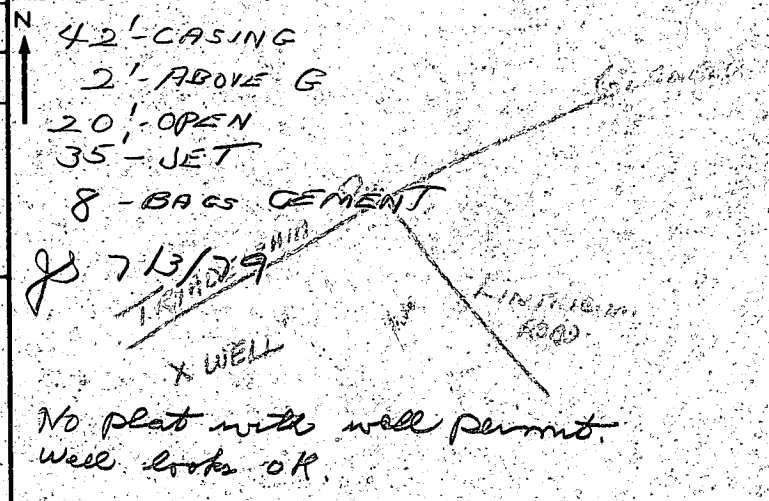 N
42'-CASING
2'-ABOVE G
20'-OPEN
35'-JET
8-BAGS CEMENT
JS 7/3/79
X WELL
ROAD
No plat with well permit.
Well looks OK.